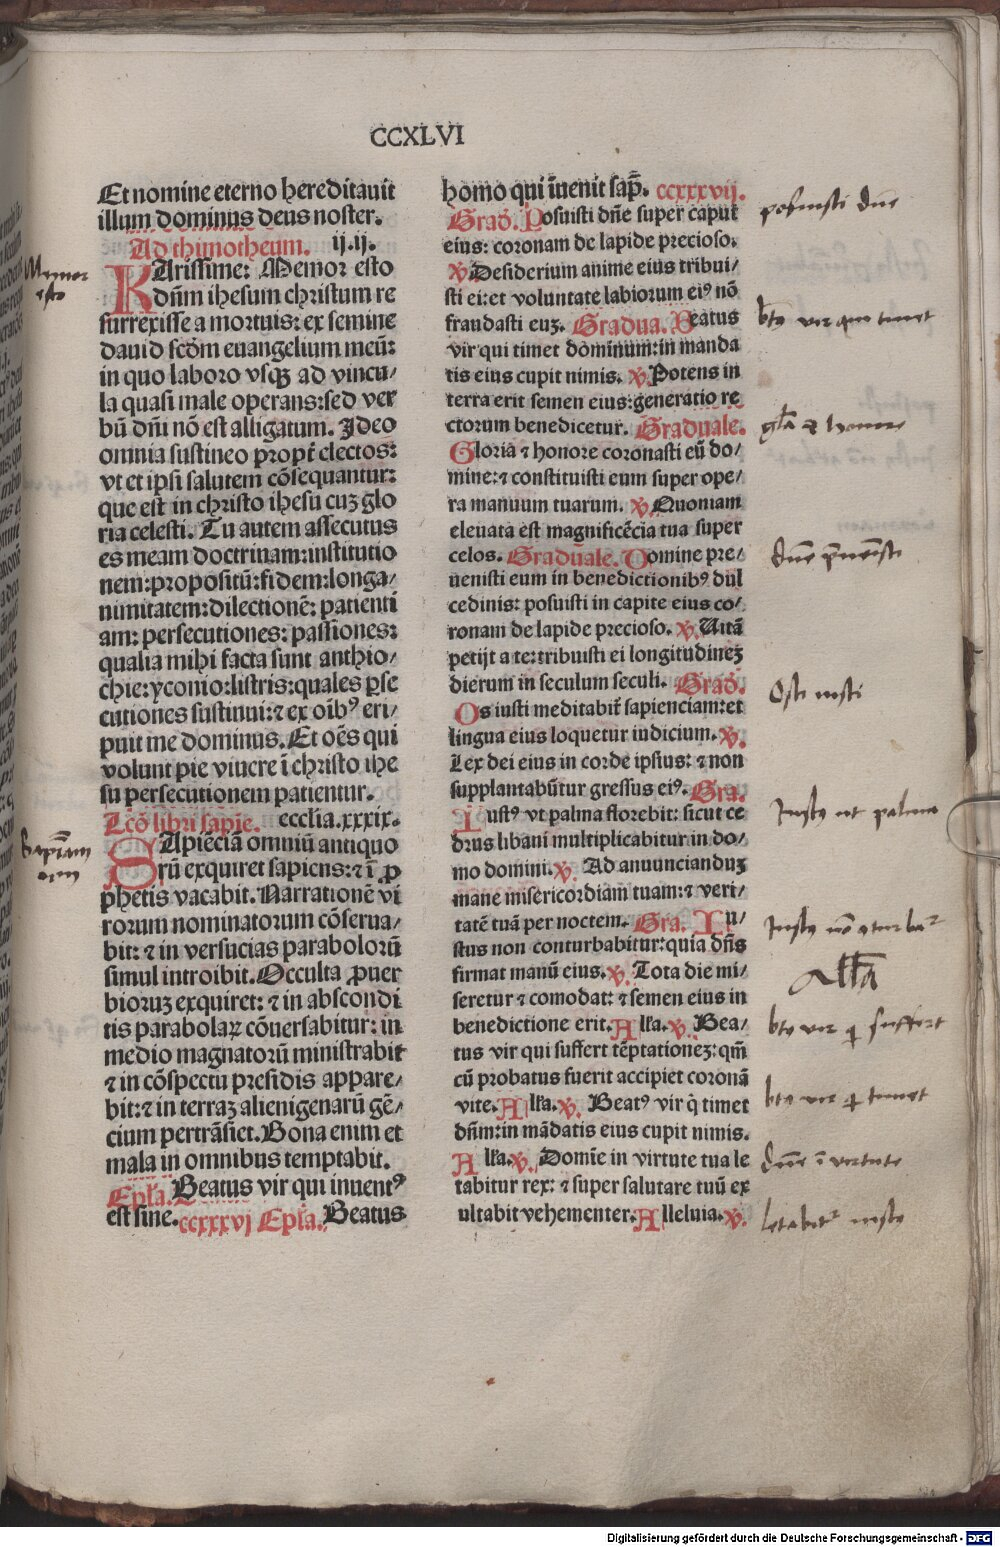 CCXLVI
Et nomine eterno hereditauit
illum dominus deus noster.
Ad thimotheum. ij.ij.
KArissime: Memor esto
dn̄m ihesum christum re
surrexisse a mortuis: ex semine
dauid scd̄m euangelium meū:
in quo laboro vsqꝫ ad vincu/
la quasi male operans: sed ver
bū dn̄i nō est alligatum. Jdeo
omnia sustineo propt̄ electos:
vt et ipsi salutem cōsequantur:
que est in christo ihesu cuꝫ glo
ria celesti. Tu autem assecutus
es meam doctrinam: institutio
nem: propositū: fidem: longa/
nimitatem: dilectionē: patienti
am: persecutiones: passiones:
qualia mihi facta sunt anthio/
chie: yconio: listris: quales ꝑse
cutiones sustinui: ⁊ ex oībꝰ eri/
puit me dominus. Et oēs qui
volunt pie viuere ī christo ihe
su persecutionem patientur.
Lcō libri sapie. ecclia.xxxix.
SApiēciā omniū antiquo
rū exquiret sapiens: ⁊ ī ꝓ
phetis vacabit. Narrationē vi
rorum nominatorum cōserua/
bit: ⁊ in versucias parabolorū
simul introibit. Occulta ꝓuer
bioruꝫ exquiret: ⁊ in abscondi
tis parabolaꝝ cōuersabitur: in
medio magnatorū ministrabit
⁊ in cōspectu presidis appare/
bit: ⁊ in terraꝫ alienigenarū gē/
cium pertrāsiet. Bona enim et
mala in omnibus temptabit.
Epl̄a. Beatus vir qui inuentꝰ
est sine. ccxxxvj Epl̄a. Beatus
homo qui īuenit sap̄. ccxxxvij.
Grad̄. Posuisti dn̄e super caput
eius: coronam de lapide precioso.
℣ Desiderium anime eius tribui/
sti ei: et voluntate labiorum eiꝰ nō
fraudasti euꝫ. Gradua. Beatus
vir qui timet dominum: in manda
tis eius cupit nimis. ℣ Potens in
terra erit semen eius: generatio re
ctorum benedicetur. Graduale.
Gloria ⁊ honore coronasti eū do/
mine: ⁊ constituisti eum super ope/
ra manuum tuarum. ℣ Quoniam
eleuata est magnificēcia tua super
celos. Graduale. Domine pre/
uenisti eum in benedictionibꝰ dul
cedinis: posuisti in capite eius co/
ronam de lapide precioso. ℣ Uitā
petijt a te: tribuisti ei longitudineꝫ
dierum in seculum seculi. Grad̄.
Os iusti meditabit̄ sapienciam: et
lingua eius loquetur iudicium. ℣
Lex dei eius in corde ipsius: ⁊ non
supplantabūtur gressus eiꝰ. Gra.
Iustꝰ vt palma florebit: sicut ce
drus libani multiplicabitur in do/
mo domini. ℣ Ad anuuncianduꝫ
mane misericordiam tuam: ⁊ veri/
tatē tuā per noctem. Gra. Iu/
stus non conturbabitur: quia dn̄s
firmat manū eius. ℣ Tota die mi/
seretur ⁊ comodat: ⁊ semen eius in
benedictione erit. All̄a. ℣ Bea/
tus vir qui suffert tēptationeꝫ: qm̄
cū probatus fuerit accipiet coronā
vite. All̄a. ℣ Beatꝰ vir q̇ timet
dn̄m: in mādatis eius cupit nimis.
All̄a. ℣ Domīe in virtute tua le
tabitur rex: ⁊ super salutare tuū ex
ultabit vehementer. Alleluia. ℣
Memor
esto
Sapīam
om̄
posuisti dn̄e
bt̄s vir qui timet
gl̄a ⁊ honore
dn̄e p̄uenisti
Os iusti
Justꝰ ut palma
Justꝰ nō ꝯturbat᷑
All̄a
bt̄s vir q̄ suffert
bt̄s vir q̄ timet
dn̄e ī virtute
letabit᷑ iustꝰ
Digitalisierung gefördert durch die Deutsche Forschungsgemeinschaft - DFG